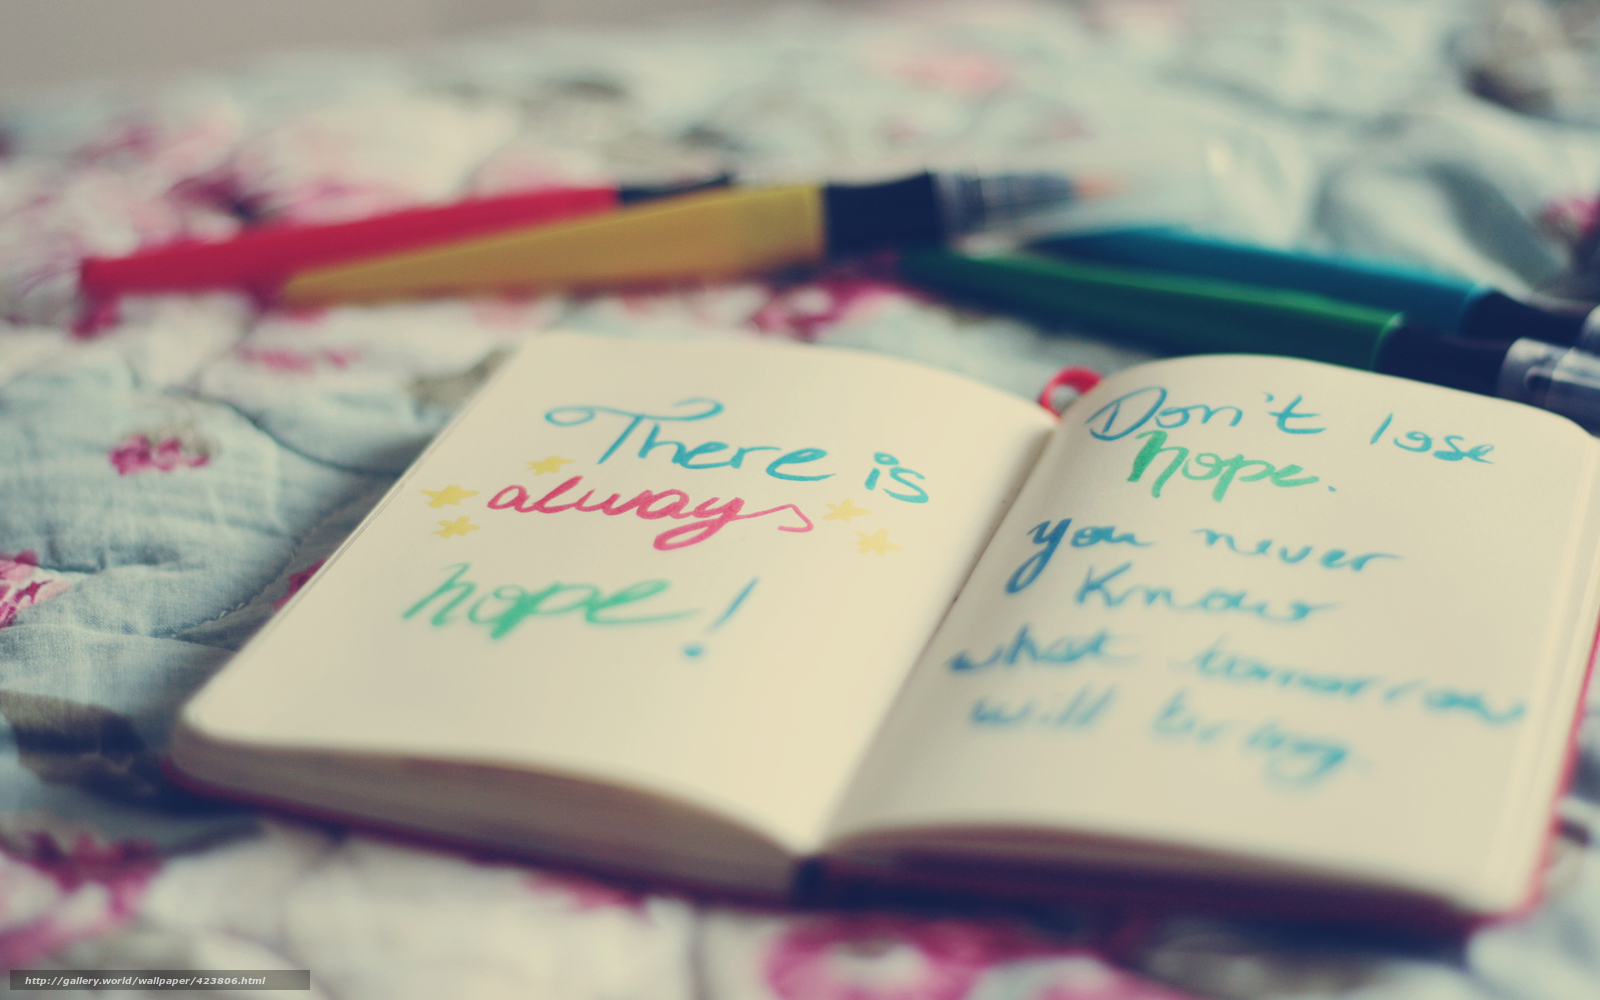 There is
always
hope!
Don't lose
hope.
you never
know
what tomorrow
will bring.
http://gallery.world/wallpaper/423806.html